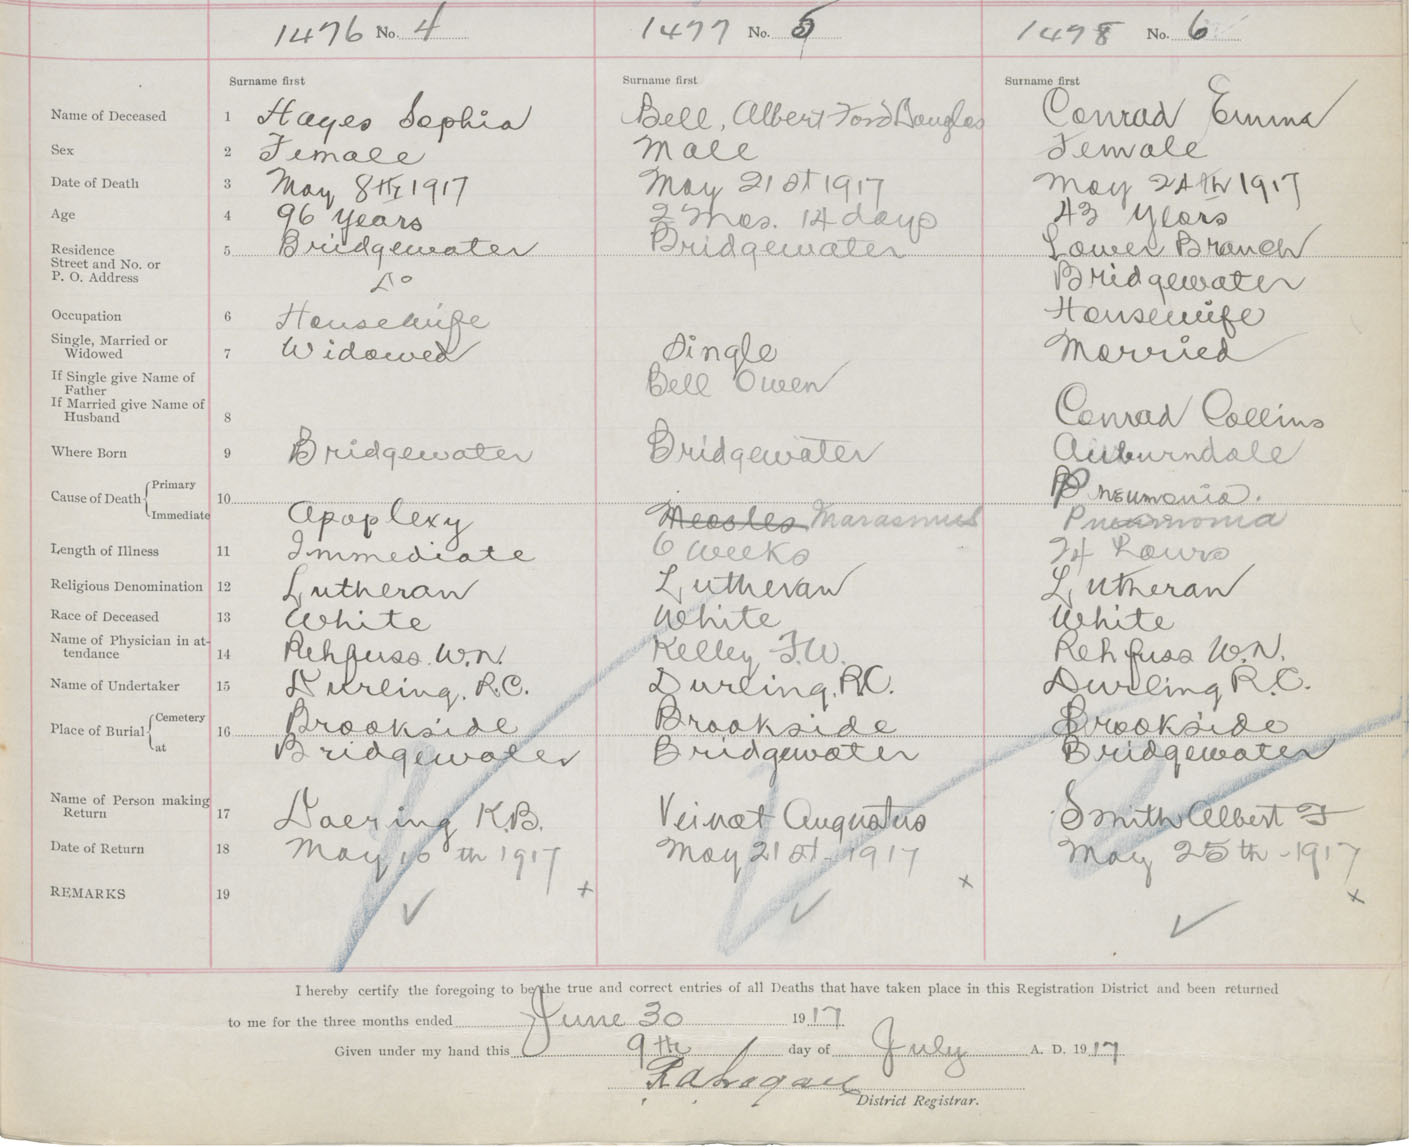 1476 No. 4 1477 No. 5 1478 No. 6
Surname first Surname first Surname first
Name of Deceased 1 Hayes Sophia Bell, Albert Ford Douglas Conrad Emma
Sex 2 Female Male Female
Date of Death 3 May 8th 1917 May 21st 1917 May 24th 1917
Age 4 96 years 2 Mos. 14 days 43 Years
Residence 5 Bridgewater Bridgewater Lower Branch
Street and No. or
P. O. Address Do Bridgewater
Occupation 6 Housewife Housewife
Single, Married or
Widowed 7 Widowed Single Married
If Single give Name of
Father Bell Owen
If Married give Name of
Husband 8 Conrad Collins
Where Born 9 Bridgewater Bridgewater Auburndale
Cause of Death Primary 10 Pneumonia.
Immediate Apoplexy Measles Marasmus Pneumonia
Length of Illness 11 Immediate 6 weeks 24 hours
Religious Denomination 12 Lutheran Lutheran Lutheran
Race of Deceased 13 White White White
Name of Physician in at-
tendance 14 Rehfuss W.N. Kelley F.W. Rehfuss W.N.
Name of Undertaker 15 Durling, R.C. Durling, R.C. Durling R.C.
Place of Burial Cemetery 16 Brookside Brookside Brookside
at Bridgewater Bridgewater Bridgewater
Name of Person making
Return 17 Doering K.B. Veinot Augustus Smith Albert F
Date of Return 18 May 16th 1917 May 21st - 1917 May 25th - 1917
REMARKS 19
I hereby certify the foregoing to be the true and correct entries of all Deaths that have taken place in this Registration District and been returned
to me for the three months ended June 30 1917
Given under my hand this 9th day of July A. D. 1917
District Registrar.